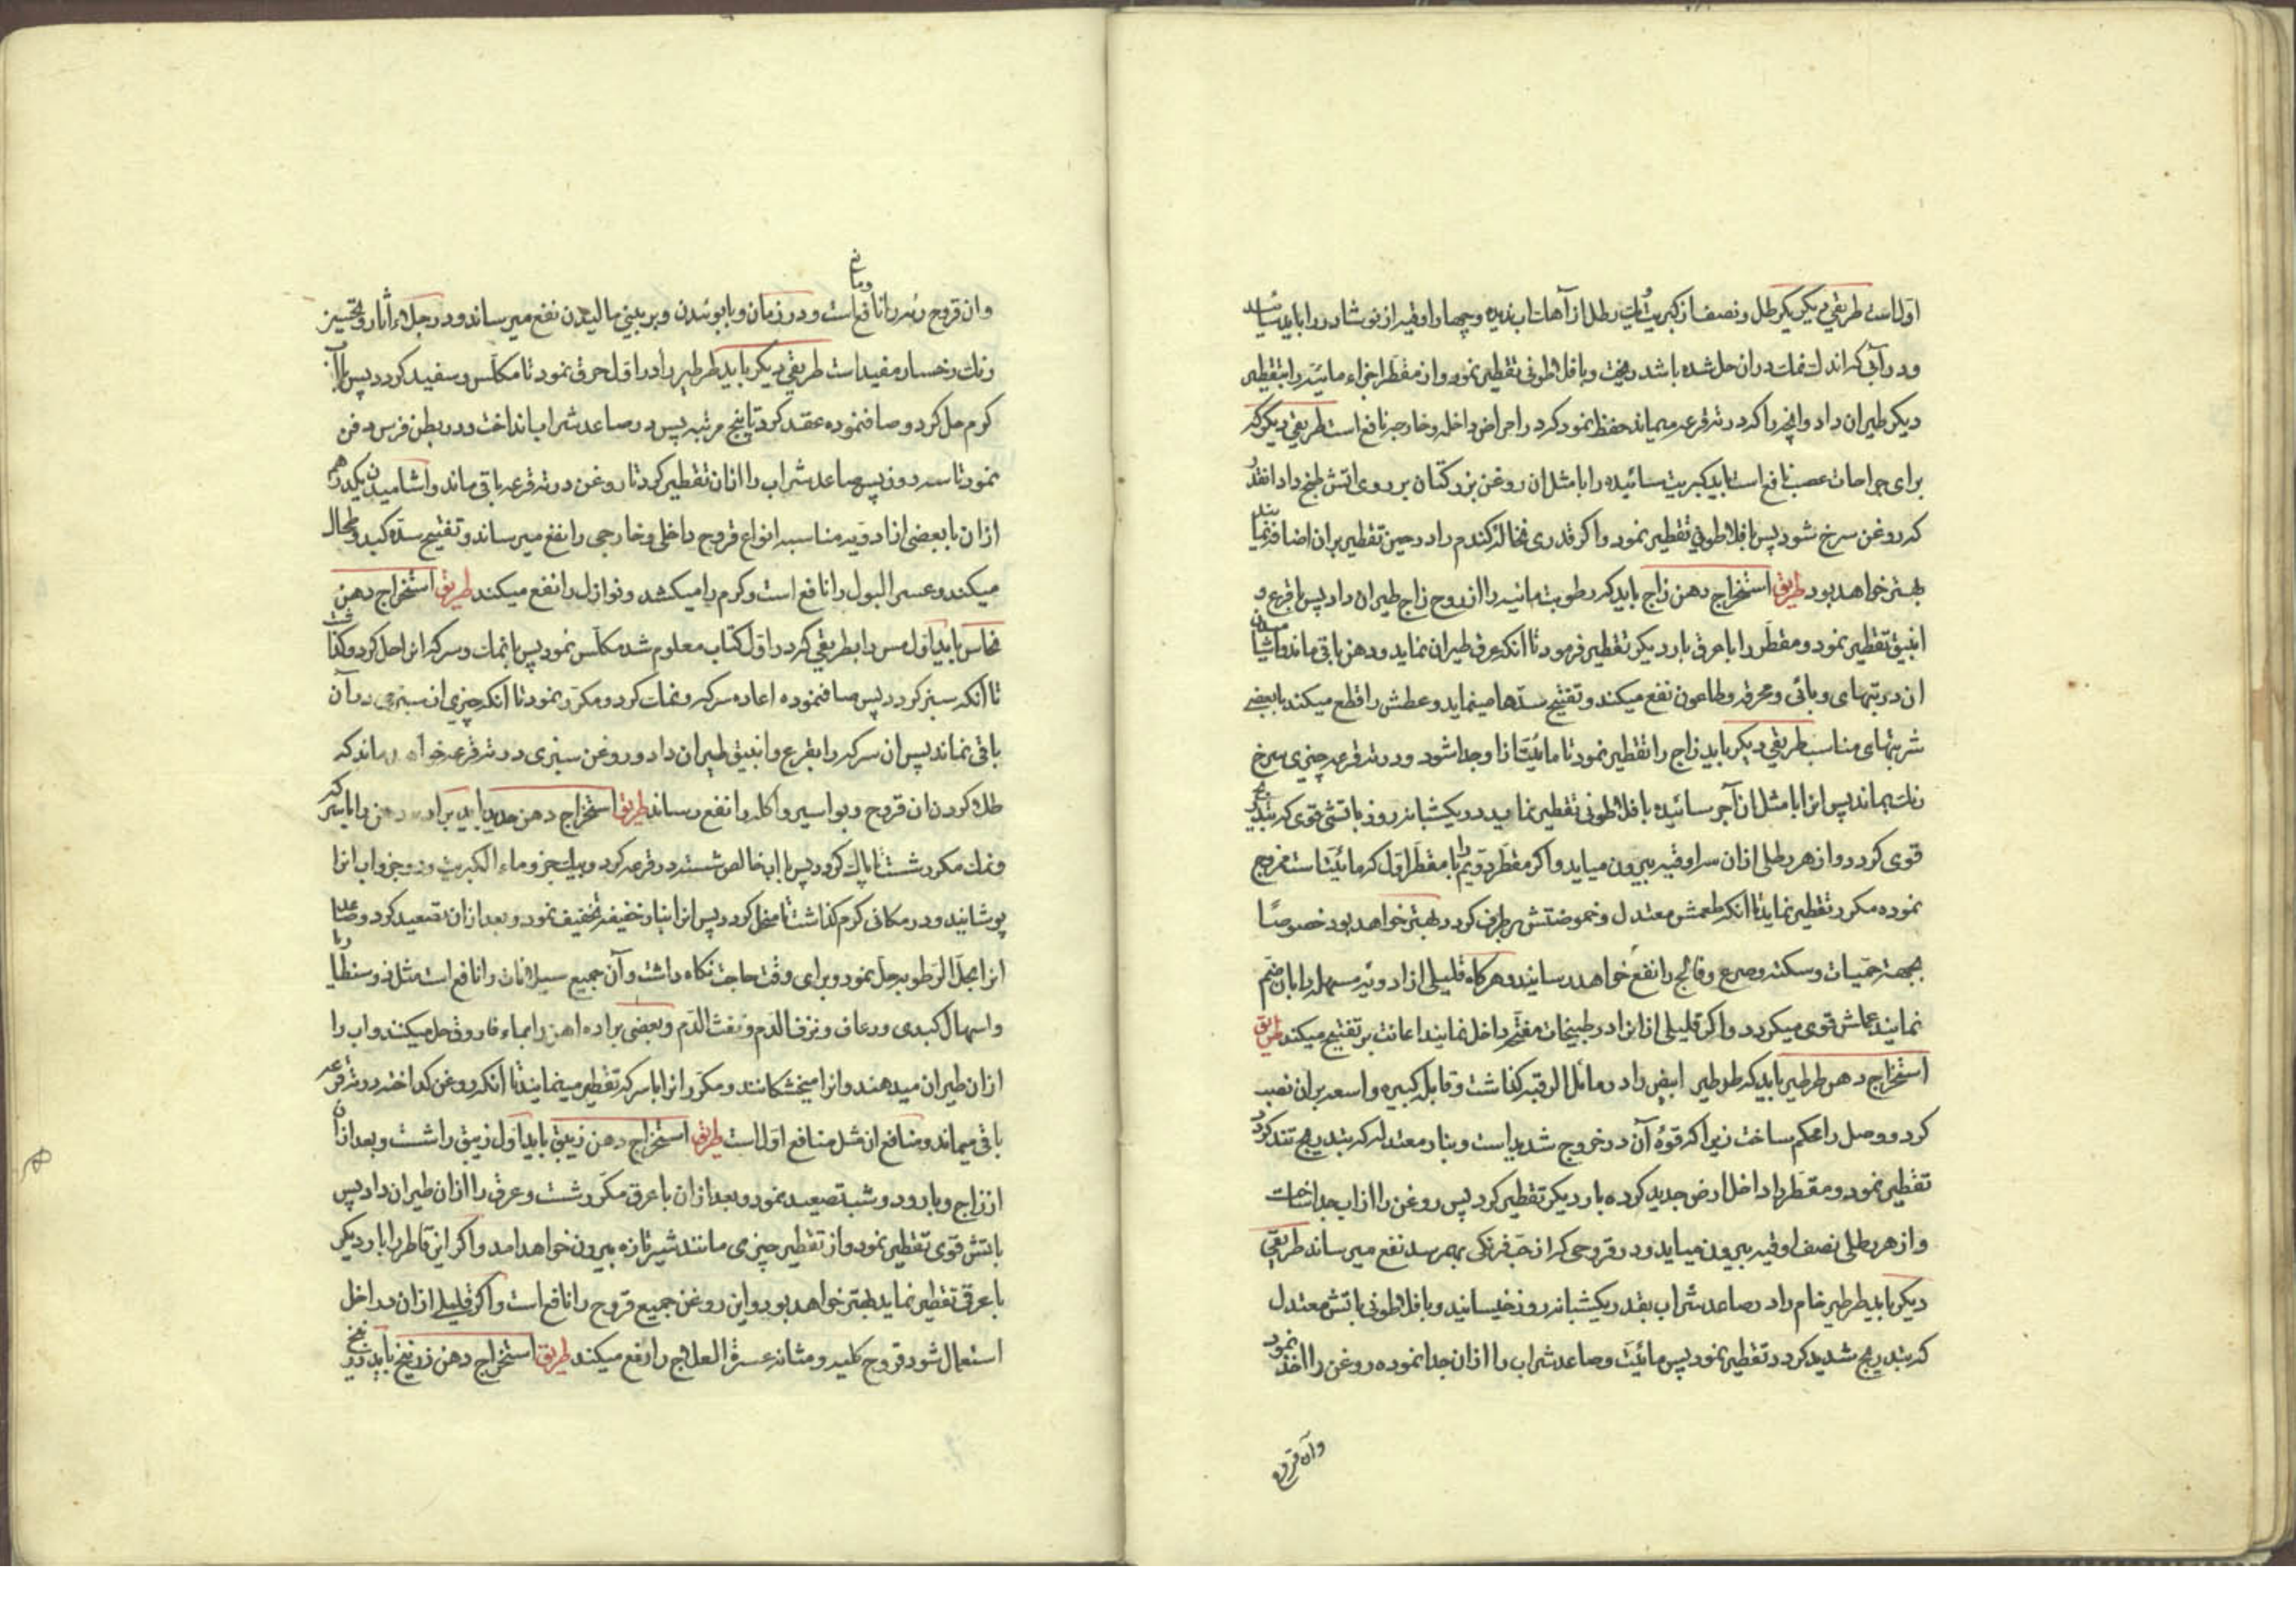 اول است طریقی دیکر یکرطل و نصف از کبریت و یکرطل از آهک اب ندیده و چهار اوقیه از نوشادر را باید سائید
و در آبی که اندک نمک در ان حل شده باشد ریخت و با افلاطونی تقطیر نمود و از مقطر اجزاء مائیه را بتقطیر
دیکر طیران داد و انچه را که در ته قرعه میماند حفظ نمود که در امراض داخله و خارجه نافع است طریقی دیکر که
برای جراحات عصب نافع است باید کبریت سائیده را با مثل ان روغن بزر کتان بر روی اتش طبخ داد انقدر
که روغن سرخ شود پس با افلاطونی تقطیر نمود و اکر قدری نخاله کندم را در حین تقطیر بران اضافه نمایند
بهتر خواهد بود طریق استخراج دهن زاج باید که رطوبت مائیه را از روح زاج طیران داد پس با قرع و
انبیق تقطیر نمود و مقطر را با عرق بار دیکر تقطیر فرمود تا انکه عرق طیران نماید و دهن باقی ماند و اشامیدن
ان در تبهای وبائی و محرقه و طاعون نفع میکند و تفتیح سدها مینماید و عطش را قطع میکند با بعضی
شربتهای مناسب طریقی دیکر باید زاج را تقطیر نمود تا مائیت ازا و جدا شود و در ته قرعه چیزی سرخ
رنک بماند پس انرا با مثل ان آجر سائیده با افلاطونی تقطیر نماید در یکشبانه روز باتشی قوی که بتدریج
قوی کردد و از هر رطلی ازان سه اوقیه بیرون میاید و اکر مقطر دویم را با مقطر اول که مائیت است ممزوج
نموده مکرر تقطیر نماید تا انکه طعمش معتدل و حموضتش برطرف کردد بهتر خواهد بود خصوصًا
بجهة حمیات و سکته و صرع و فالج را نفع خواهد رسانید و هرکاه قلیلی از ادویه مسهله را بان ضم
نمایند عملش قوی میکردد و اکر قلیلی از انرا در طبیخات مفتحه داخل نمایند اعانت بر تفتیح میکند طریق
استخراج دهن طرطیر باید که طرطیر ابیض را در مائل الرقبه کذاشت و قابله کبیره واسعه بران نصب
کرد و وصل را محکم ساخت زیرا که قوه آن در خروج شدید است و بنار معتدله که بتدریج تند کردد
تقطیر نمود و مقطر را داخل ارض جدید کرده بار دیکر تقطیر کرد پس روغن را از اب جدا ساخت
و از هر رطلی نصف اوقیه بیرون میاید و در قروحی که از حب فرنکی بهم رسد نفع میرساند طریقی
دیکر باید طرطیر خام را در صاعد شراب بقدر یکشبانه روز خیسانید و با افلاطونی باتش معتدل
که بتدریج شدید کردد تقطیر نمود پس مائیت و صاعد شراب را ازان جدا نموده روغن را اخذ نمود
وآن قروح
وان قروح را نافع است و در زمان وبا بوئیدن و بر بینی مالیدن نفع میرساند و در جلاء آثار و تحسین
رنک رخسار مفید است طریقی دیکر باید طرطیر را در اول حرق نمود تا مکلس و سفید کردد پس با آب
کرم حل کرد و صاف نموده عقد کرد تا پنج مرتبه پس در صاعد شراب انداخت و در بطن فرس دفن
نمود تا سه روز پس صاعد شراب را ازان تقطیر کرد تا روغن در ته قرعه باقی ماند و اشامیدن یکدرهم
ازان با بعضی از ادویه مناسبه انواع قروح داخلی و خارجی را نفع میرساند و تفتیح سده کبد و طحال
میکند و عسر البول را نافع است و کرم را میکشد و نوازل را نفع میکند طریق استخراج دهن
نحاس باید اول مس را بطریقی که در اول کتاب معلوم شد مکلس نمود پس با نمک و سرکه انرا حل کرد و کذاشت
تا انکه سبز کردد پس صاف نموده اعاده سرکه و نمک کرد و مکرر نمود تا انکه چیزی از سبزی در آن
باقی نماند پس ان سرکه را بقرع و انبیق طیران داد و روغن سبزی در ته قرعه خواهد ماند که
طلا کردن ان قروح و بواسیر و آکله را نفع رساند طریق استخراج دهن حدید باید براده آهن را با سرکه
و نمک مکرر شست تا پاک کردد پس با اب خالص شسته در قرعه کرد و بیک جزو ماء الکبریت و دو جزو اب انرا
پوشانید و در مکانی کرم کذاشت تا منحل کردد پس انرا بنار خفیفه تجفیف نمود و بعد ازان تصعید کرد و صاعد
انرا بمحل الرطوبه حل نمود و برای وقت حاجت نکاه داشت و آن جمیع سیلانات را نافع است مثل ذوسنطاریا
و اسهال کبدی و رعاف و نزف الدم و نفث الدم و بعضی براده اهن را بماء فاروق حل میکنند و اب را
ازان طیران میدهند و انرا میخشکانند و مکرر انرا با سرکه تقطیر مینمایند تا انکه روغن کداخته در ته قرعه
باقی میماند و منافع ان مثل منافع اول است طریق استخراج دهن زیبق باید اول زیبق را شست و بعد ازان
از زاج و بارود و شب تصعید نمود و بعد ازان با عرق مکرر شست و عرق را ازان طیران داد پس
باتش قوی تقطیر نمود و از تقطیر چیزی مانند شیر تازه بیرون خواهد امد و اکر این قاطر را بار دیکر
با عرق تقطیر نماید بهتر خواهد بود و این روغن جمیع قروح را نافع است و اکر قلیلی ازان در داخل
استعمال شود قروح کلیه و مثانه عسرة العلاج را رفع میکند طریق استخراج دهن زرنیخ باید زرنیخ